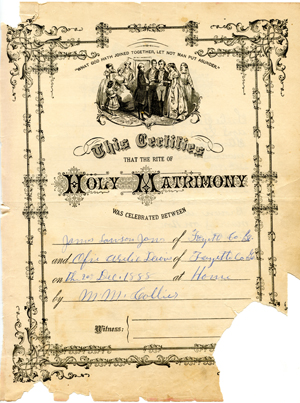 "WHAT GOD HATH JOINED TOGETHER, LET NOT MAN PUT ASUNDER."
This Certifies
THAT THE RITE OF
HOLY MATRIMONY
WAS CELEBRATED BETWEEN
James of Fayette Co
and of Fayette Co
on Dec. 1888 at Home
by M. M. Collier
Witness: